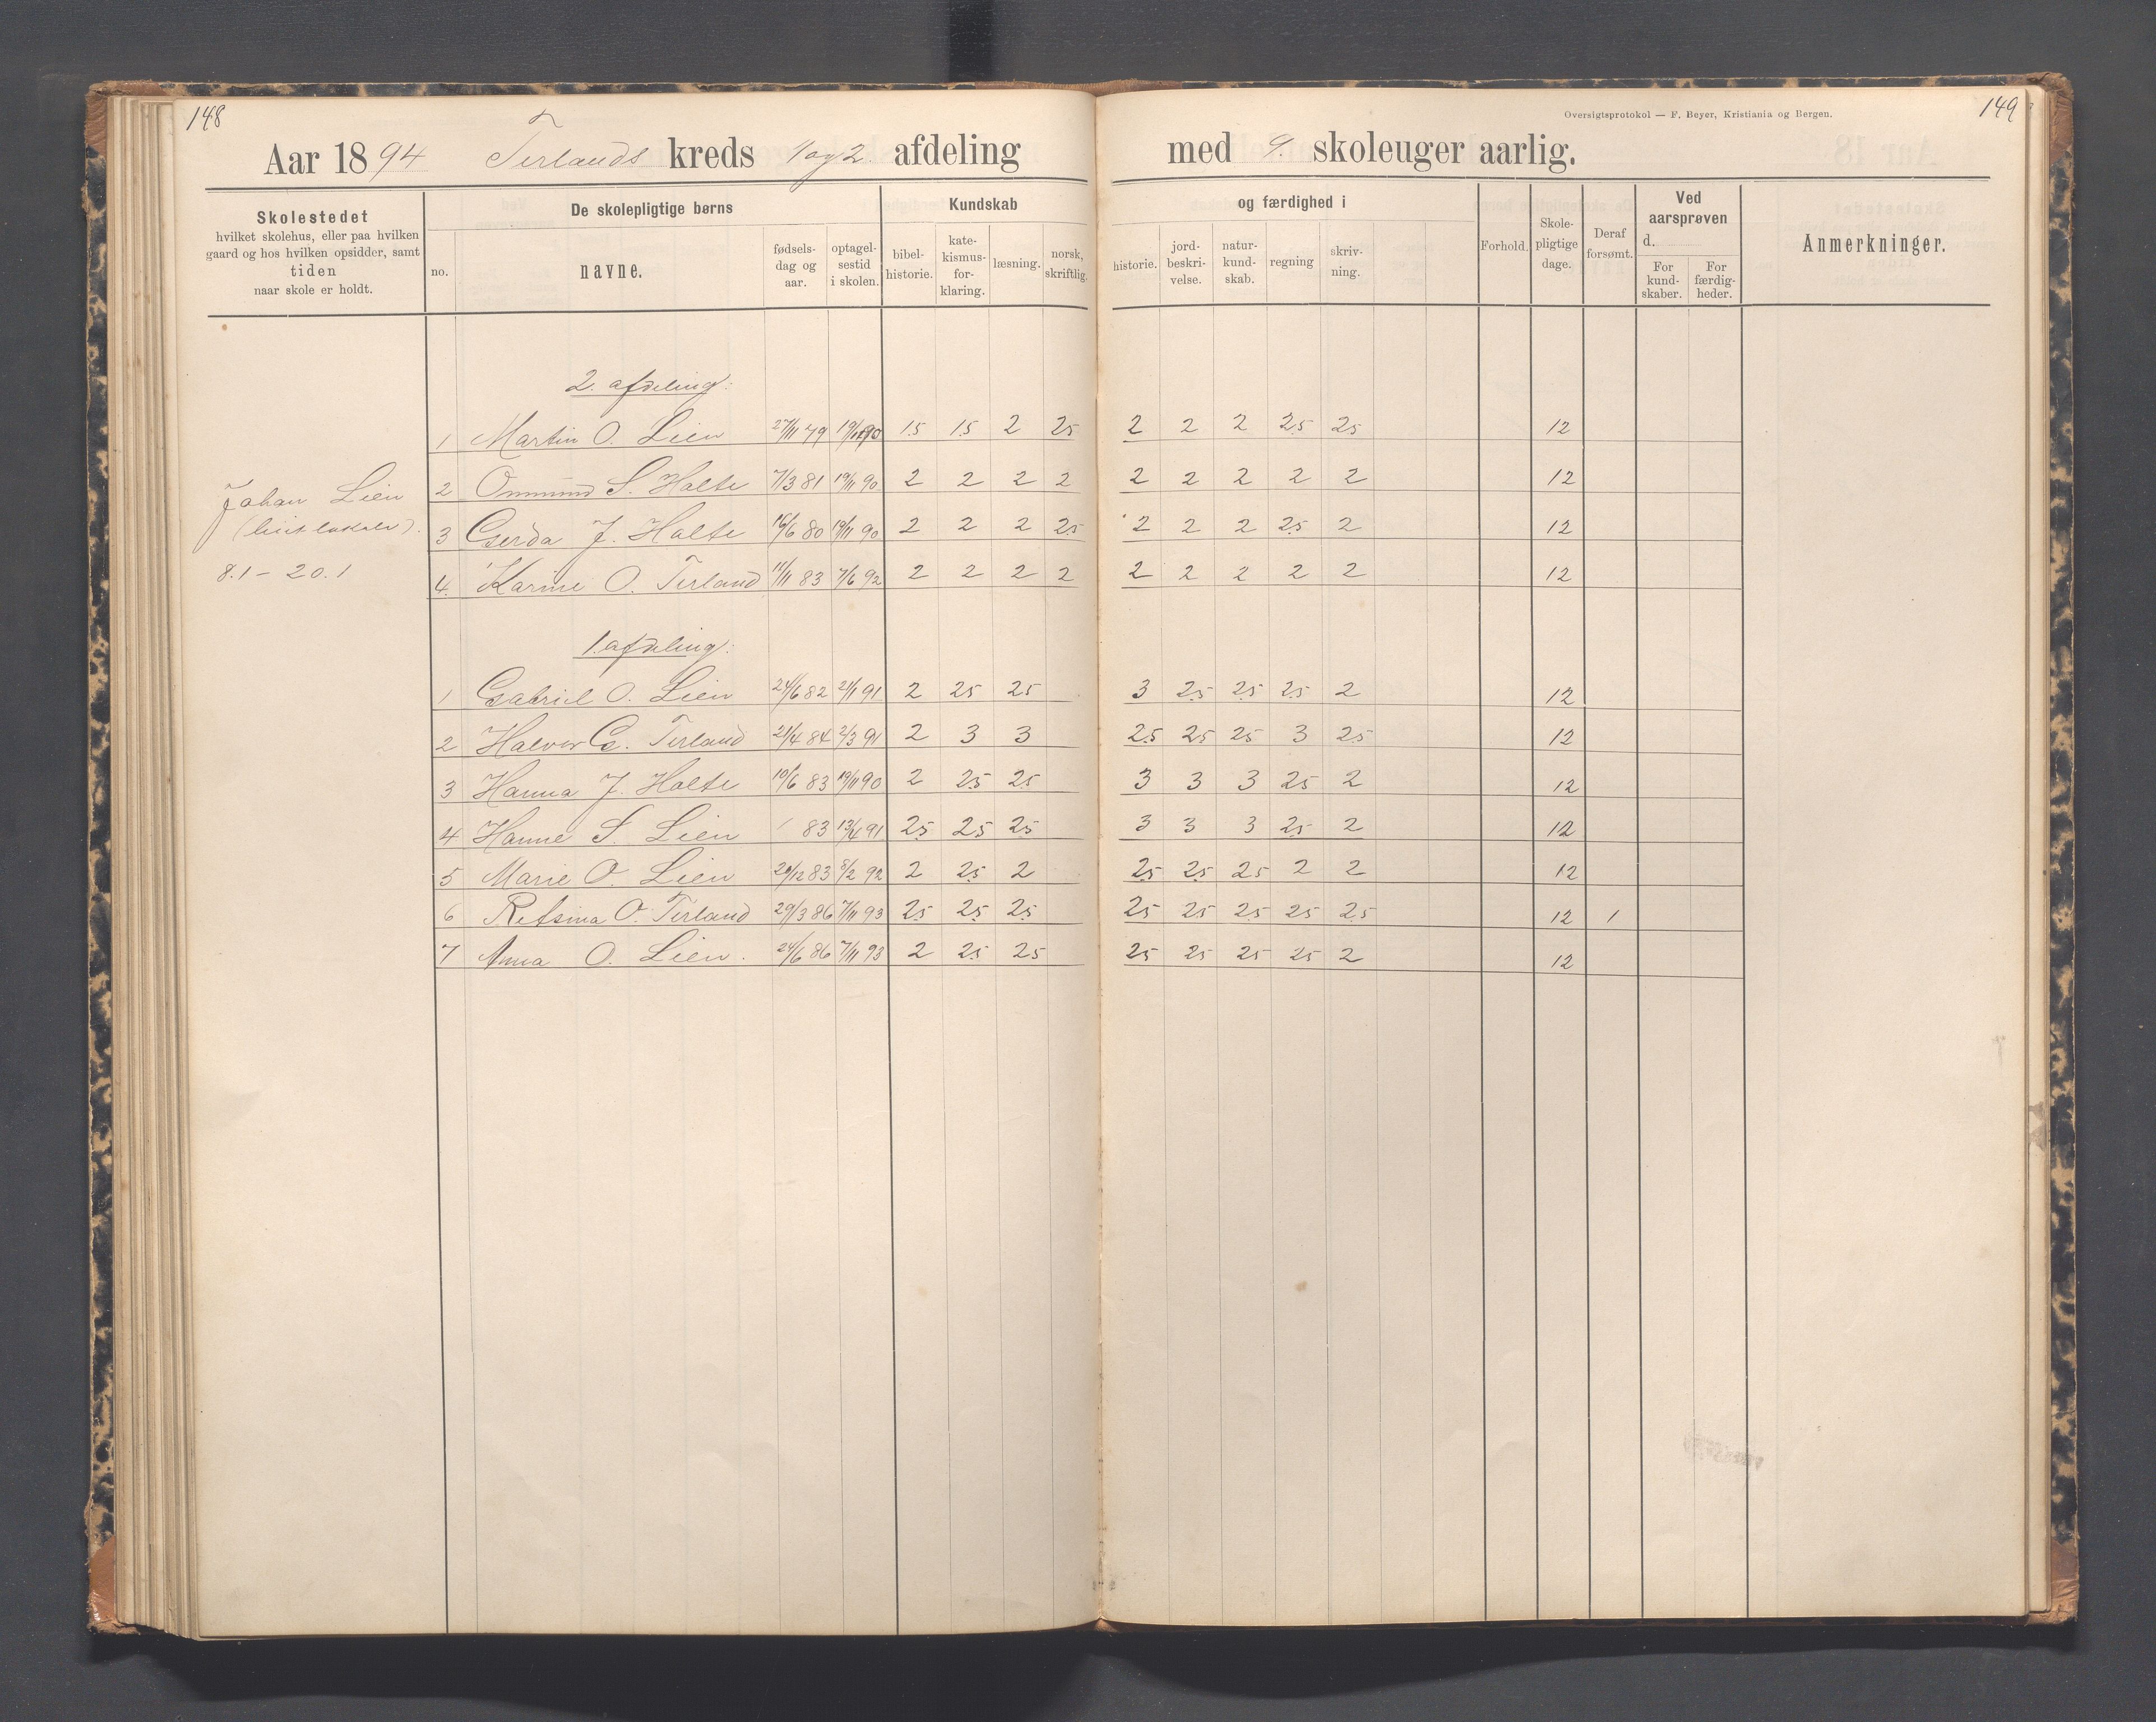 148
149
Oversigtsprotokol — F. Beyer, Kristiania og Bergen.
Aar 1894 Terlands kreds 1 og 2. afdeling med 9. skoleuger aarlig.
Skolestedet
hvilket skolehus, eller paa hvilken
gaard og hos hvilken opsidder, samt
tiden
naar skole er holdt.
De skolepligtige børns
no.
navne.
fødsels-
dag og
aar.
optagel-
sestid
i skolen.
Kundskab
bibel-
historie.
kate-
kismus-
for-
klaring.
læsning.
norsk,
skriftlig.
og færdighed i
historie.
jord-
beskri-
velse.
natur-
kund-
skab.
regning
skriv-
ning.
Forhold.
Skole-
pligtige
dage.
Deraf
forsømt.
Ved
aarsprøven
d.
For
kund-
skaber.
For
færdig-
heder.
Anmerkninger.
2. afdeling:
1 Martin O. Lien 27/11 79 19/11 90 15 15 2 25 2 2 2 25 25 12
2 Ommund S. Halte 7/3 81 19/11 90 2 2 2 2 2 2 2 2 2 12
3 Gerda J. Halte 16/6 80 19/11 90 2 2 2 25 2 2 2 25 2 12
4. Karine O. Terland 11/11 83 7/6 92 2 2 2 2 2 2 2 2 2 12
Johan Lien
8.1 – 20.1
1. afdeling:
1 Gabriel O. Lien 24/6 82 21/1 91 2 25 25 3 25 25 25 2 12
2 Halvor G. Terland 21/4 84 2/3 91 2 3 3 25 25 25 3 25 12
3 Hanna J. Halte 10/6 83 19/11 90 2 25 25 3 3 3 25 2 12
4 Hanne S. Lien / 83 13/4 91 25 25 25 3 3 3 25 2 12
5 Marie O. Lien 20/12 83 8/2 92 2 25 2 25 25 25 2 2 12
6 Retsina O. Terland 29/3 86 7/11 93 25 25 25 25 25 25 25 25 12 1
7 Anna O. Lien. 24/6 86 7/11 93 2 25 25 25 25 25 25 2 12